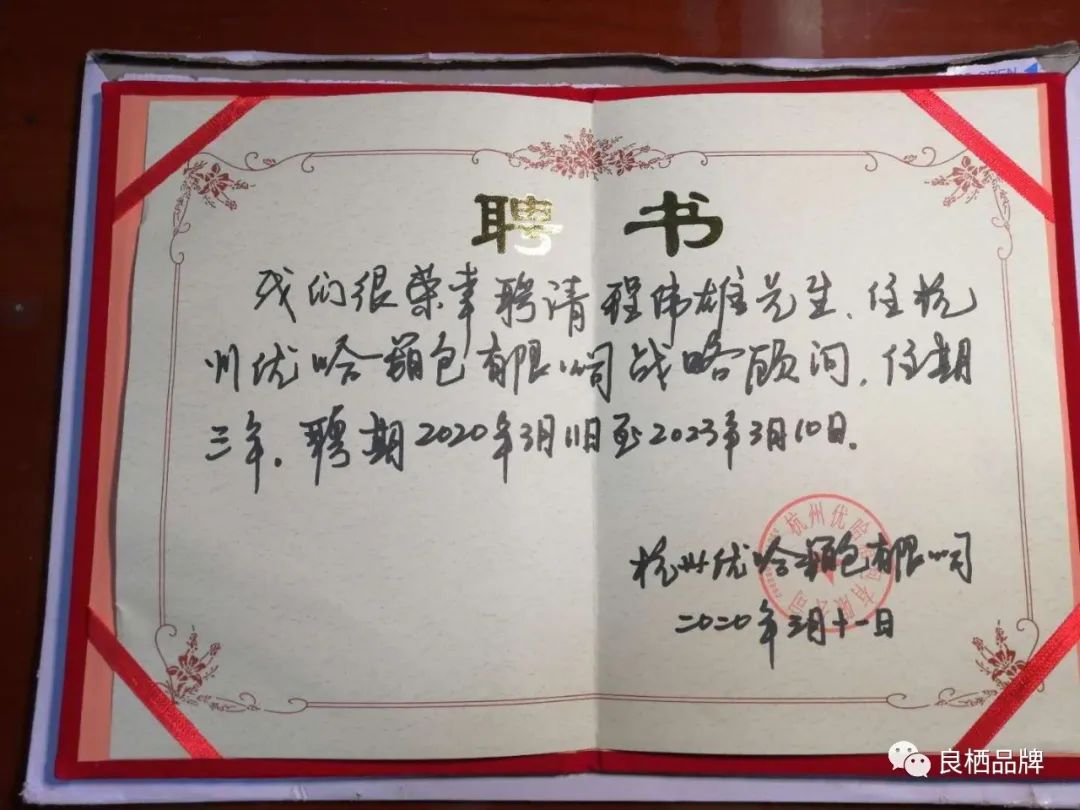 聘 书
我们很荣幸聘请程伟雄先生、任杭
州优哈箱包有限公司战略顾问，任期
三年。聘期2020年3月11日至2023年3月10日。
杭州优哈箱包有限公司
杭州优哈箱包有限公司
二〇二〇年三月十一日
OPEN
良栖品牌